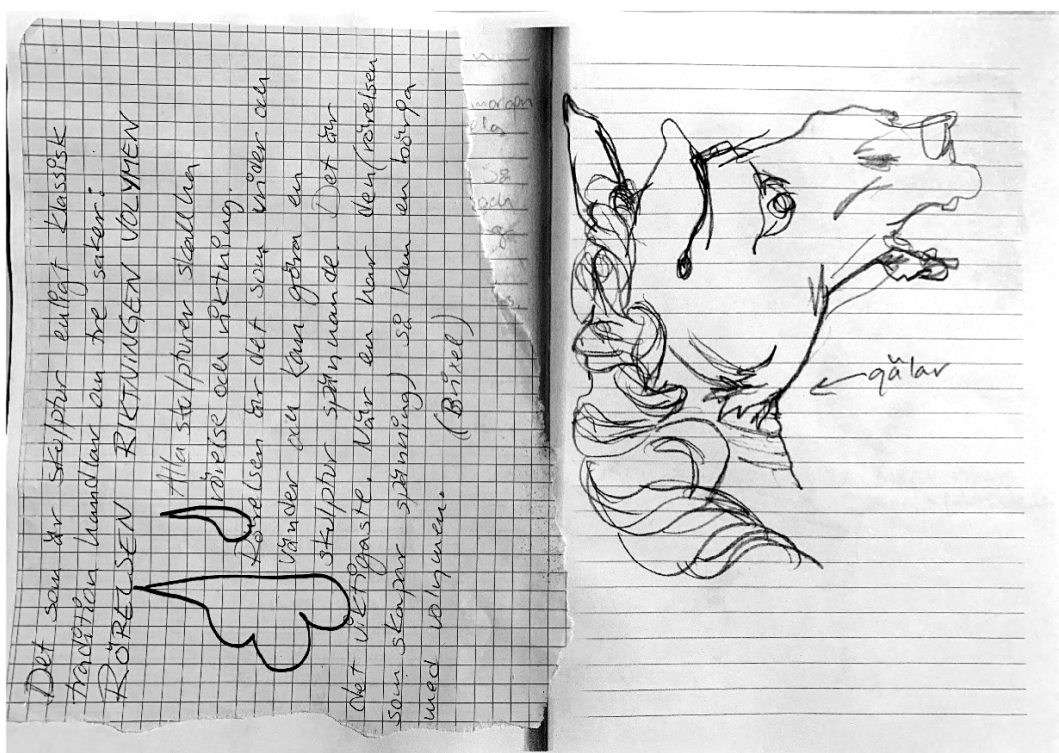 Det som är skulptur enligt klassisk
tradition handlar om tre saker:
RÖRELSEN RIKTNINGEN VOLYMEN
Alla skulpturer skall ha
rörelse och riktning.
Rörelsen är det som vrider och
vänder och kan göra en
skulptur spännande. Det är
det viktigaste. När en har den (rörelsen
som skapar spänning) så kan en börja
med volymen.
(Bixel)
gälar